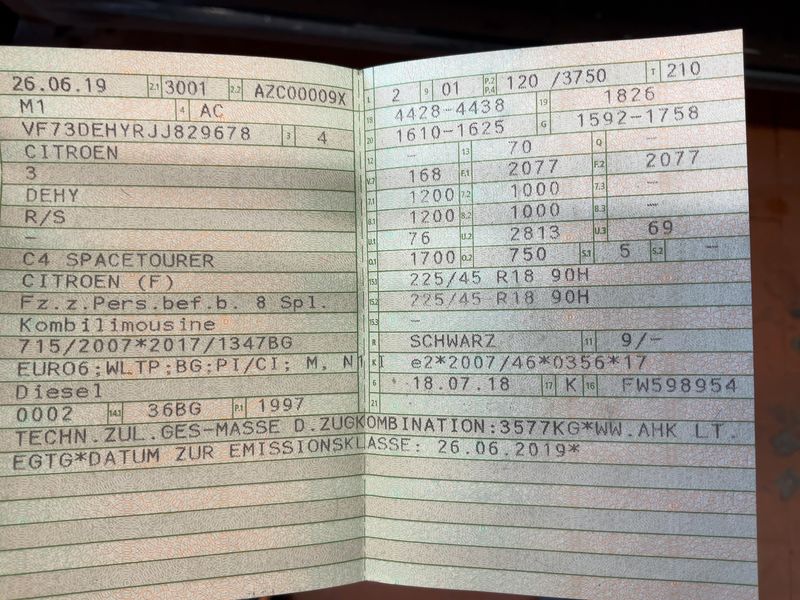 26.06.19 2.1 3001 2.2 AZC00009X
M1 4 AC
VF73DEHYRJJ829678 3 4
CITROEN
3
DEHY
R/S
–
C4 SPACETOURER
CITROEN (F)
Fz.z.Pers.bef.b. 8 Spl.
Kombilimousine
715/2007*2017/1347BG
EURO6;WLTP;BG;PI/CI; M, N1 I
Diesel
0002 14.1 36BG P.1 1997
L 2 9 01 P.2 P.4 120 /3750 T 210
18 4428-4438 19 1826
20 1610-1625 G 1592-1758
12 – 13 70 Q –
V.7 168 F.1 2077 F.2 2077
7.1 1200 7.2 1000 7.3 –
8.1 1200 8.2 1000 8.3 –
U.1 76 U.2 2813 U.3 69
O.1 1700 O.2 750 S.1 5 S.2 –
15.1 225/45 R18 90H
15.2 225/45 R18 90H
15.3 –
R SCHWARZ 11 9/-
K e2*2007/46*0356*17
6 18.07.18 17 K 16 FW598954
21
TECHN.ZUL.GES-MASSE D.ZUGKOMBINATION:3577KG*WW.AHK LT.
EGTG*DATUM ZUR EMISSIONSKLASSE: 26.06.2019*